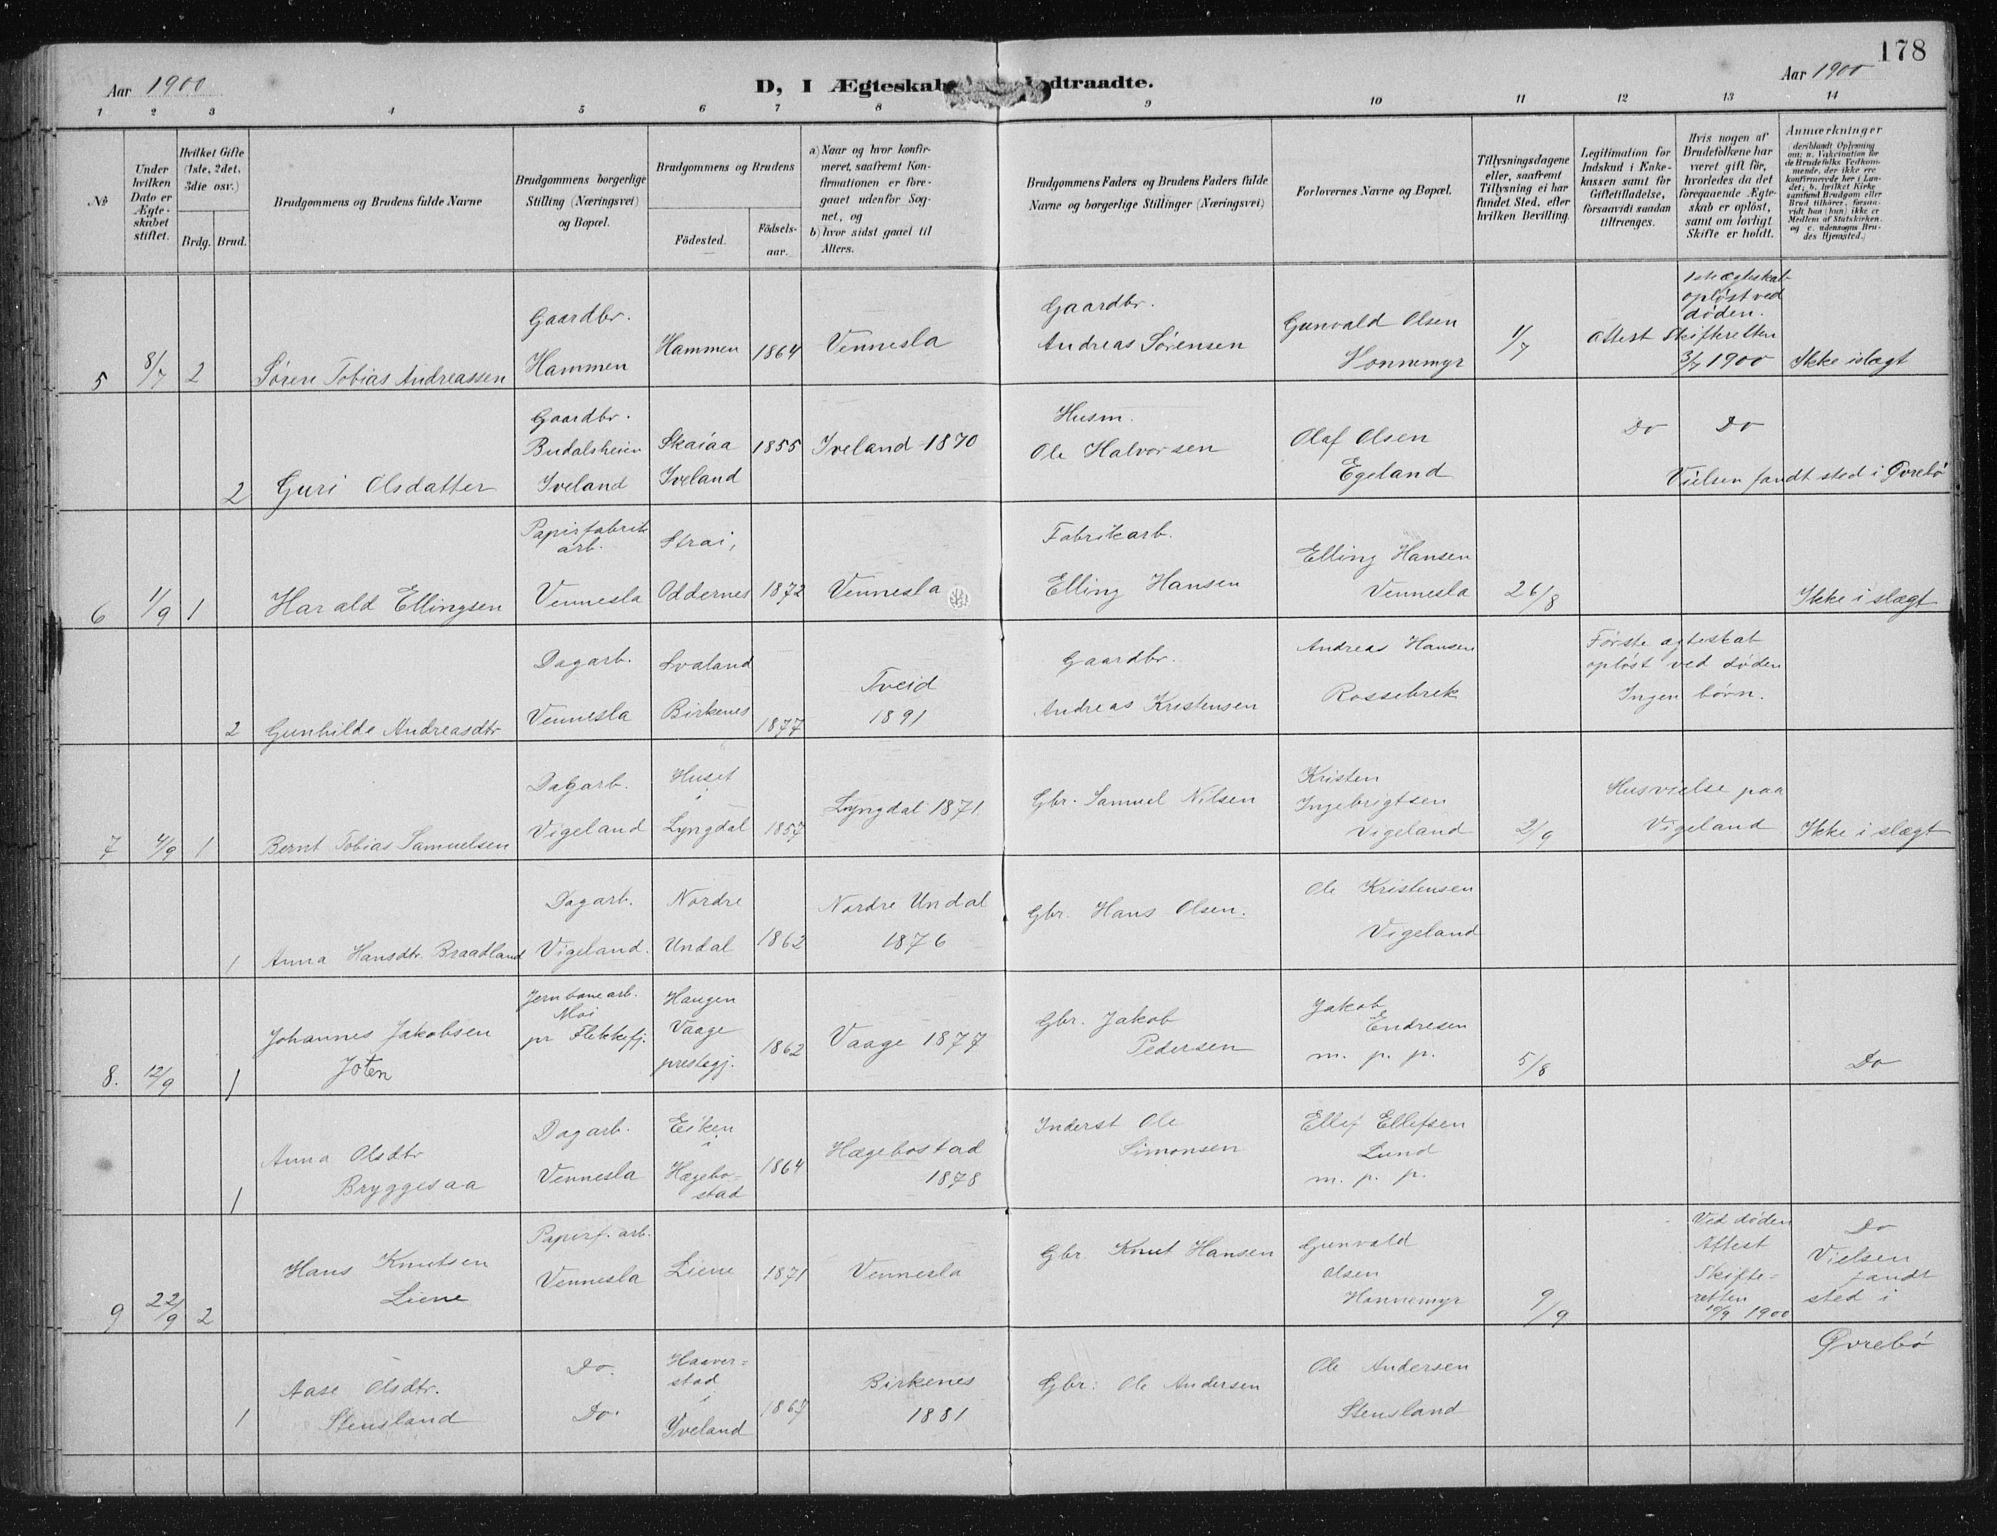 178
Aar 1900
D, I Ægteskab indtraadte.
Aar 1900
1 2 3 4 5 6 7 8 9 10 11 12 13 14
№
Under hvilken Dato er Ægteskabet stiftet.
Hvilket Gifte (1ste, 2det, 3die osv.)
Brdg. Brud.
Brudgommens og Brudens fulde Navne
Brudgommens borgerlige Stilling (Næringsvei) og Bopæl.
Brudgommens og Brudens
Fødested.
Fødselsaar.
a) Naar og hvor konfirmeret, saafremt Konfirmationen er foregaaet udenfor Sognet, og
b) hvor sidst gaaet til Alters.
Brudgommens Faders og Brudens Faders fulde Navne og borgerlige Stillinger (Næringsvei)
Forlovernes Navne og Bopæl.
Tillysningsdagene eller, saafremt Tillysning ei har fundet Sted, efter hvilken Bevilling.
Legitimation for Indskud i Enkekassen samt for Giftetilladelse, forsaavidt saadan tiltrænges.
Hvis nogen af Brudefolkene har været gift før, hvorledes da det foregaaende Ægteskab er opløst, samt om lovligt Skifte er holdt.
Anmærkninger (deriblandt Oplysning om: a. Vakcination for de Brudefolks Vedkommende, der ikke ere konfirmerede her i Landet; b. hvilket Kirkesamfund Brudgom eller Brud tilhører, forsaavidt han (hun) ikke er Medlem af Statskirken, og c. udensogns Brudes Hjemsted.)
5 8/7 2 Søren Tobias Andreassen
Gaardbr. Hammen
Hammen 1864 Vennesla
Gaardbr. Andreas Sørensen
Gunvald Olsen Honnemyr
1/7
1ste ægteskab opløst ved døden.
Attest Skifteretten 3/7 1900
Ikke i slægt
2 Guri Olsdatter
Gaardbr. Budalsheien Iveland
Skaiaa Iveland 1855 Iveland 1870
Husm. Ole Halvorsen
Olaf Olsen Egeland
Do Do
Vielsen fandt sted i Øvrebø
6 1/9 1 Harald Ellingsen
Papirfabrikarb. Vennesla
Strai, Oddernes 1872 Vennesla
Fabrikarb. Elling Hansen
Elling Hansen Vennesla
26/8
Ikke i slægt
2 Gunhilde Andreasdtr
Dagarb. Vennesla
Svaland Birkenes 1877
Tveid 1891
Gaardbr. Andreas Kristensen
Andreas Hansen Rossebrek
Første ægteskab opløst ved døden
Ingen børn.
7 4/9 1 Bernt Tobias Samuelsen
Dagarb. Vigeland
Huset i Lyngdal 1857 Lyngdal 1871
Gbr. Samuel Nilsen
Kristen Ingebrigtsen Vigeland
2/9
Husvielse paa Vigeland
Ikke i slægt
1 Anna Hansdtr. Braadland
Dagarb. Vigeland.
Nordre Undal 1862
Nordre Undal 1876
Gbr. Hans Olsen.
Ole Kristensen Vigeland
8. 12/9 1 Johannes Jakobsen Joten
Jernbanearb. Moi pr Flekkefj.
Haugen Vaage prestegj. 1862 Vaage 1877
Gbr. Jakob Pedersen
Jakob Endresen m. p. p.
5/8
Do
1 Anna Olsdtr Bryggesaa
Dagarb. Vennesla
Eiken i Hægebostad 1864
Hægebostad 1878
Inderst Ole Simonsen
Ellef Ellefsen Lund m. p. p.
9 22/9 2 Hans Knutsen Liene
Papirf. arb. Vennesla
Liene 1871 Vennesla
Gbr. Knut Hansen
Gunvald Olsen Honnemyr
9/9
Ved døden Attest Skifteretten 10/9 1900
Do Vielsen fandt sted i Øvrebø
1 Aase Olsdtr. Stensland
Do. Do.
Haaverstad i Yveland 1867
Birkenes 1881
Gbr. Ole Andersen
Ole Andersen Stensland